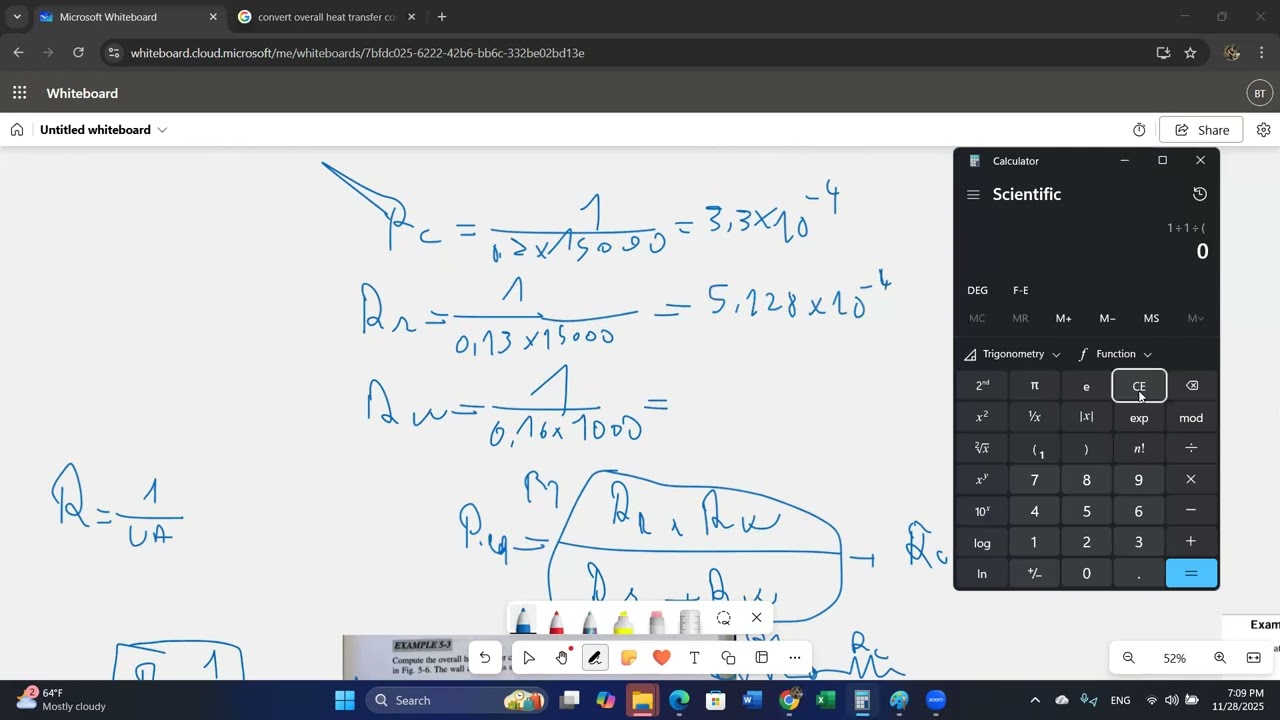 Microsoft Whiteboard
convert overall heat transfer co
whiteboard.cloud.microsoft/me/whiteboards/7bfdc025-6222-42b6-bb6c-332be02bd13e
Whiteboard
BT
Untitled whiteboard
Share
Rc = 1 / 0.2×15000 = 3,3×10^-4
Rr = 1 / 0,13×15000 = 5,128×10^-4
Rw = 1 / 0,16×1000 =
R = 1 / UA
Req = Rr × Rw / Rr + Rw → Rc
R 1
Rc
EXAMPLE 5-3
Compute the overall h
in Fig. 5-6. The wall
Exam
Calculator
Scientific
1 ÷ 1 ÷ (
0
DEG F-E
MC MR M+ M− MS M˅
Trigonometry Function
2nd π e CE
x² ¹/x |x| exp mod
²√x (1 ) n! ÷
xʸ 7 8 9 ×
10ˣ 4 5 6 −
log 1 2 3 +
ln +/− 0 . =
52%
2
64°F
Mostly cloudy
Search
ENG
7:09 PM
11/28/2025